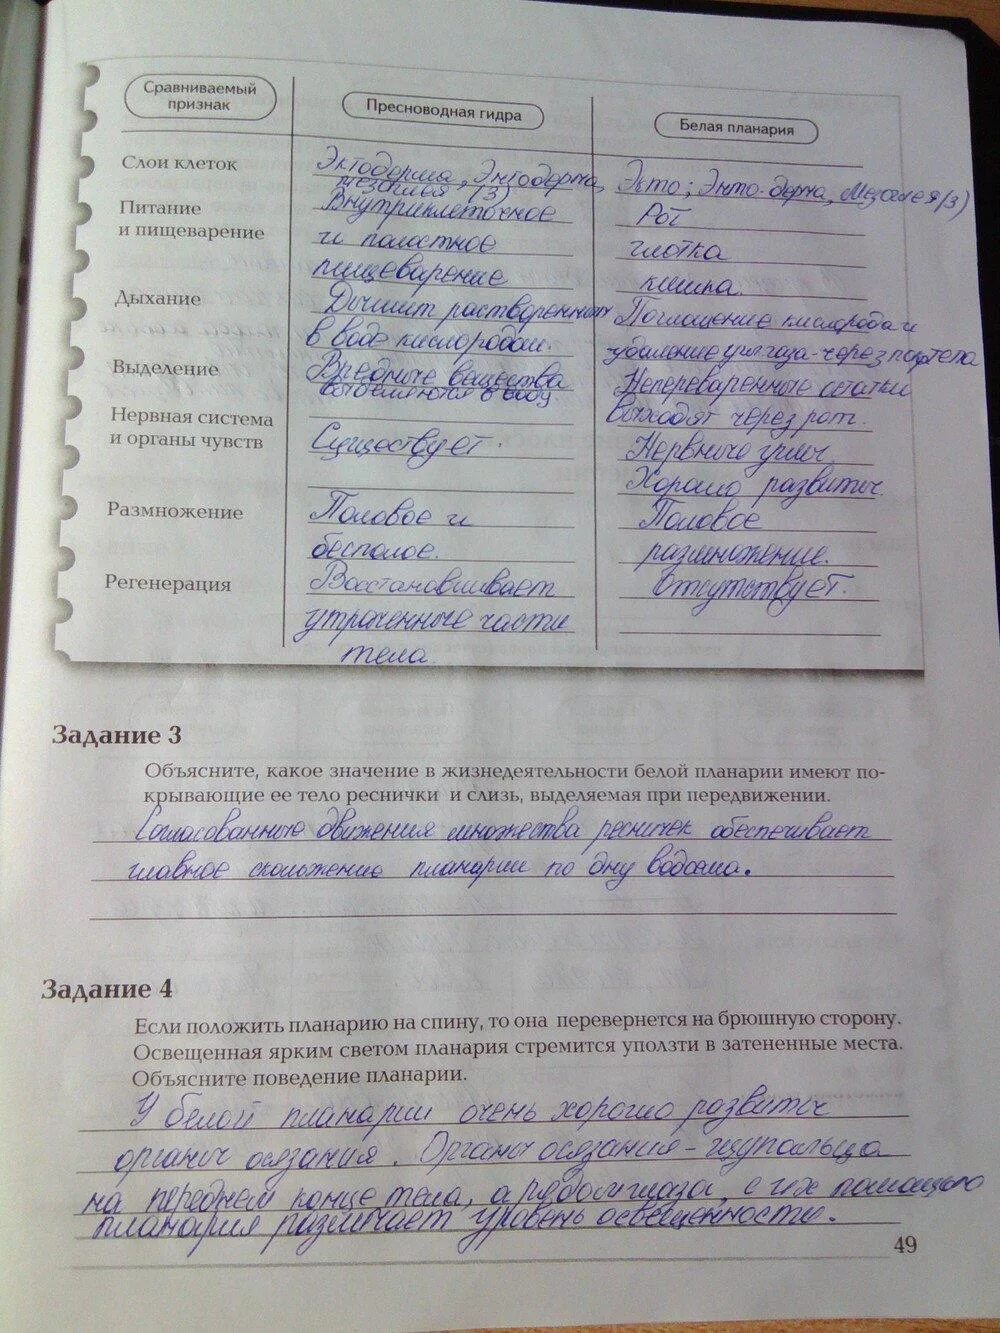 Сравниваемый
признак
Пресноводная гидра
Белая планария
Слои клеток
Эктодерма, Энтодерма,
мезоглея (3)
Экто; Энто-дерма, Мезоглея(3)
Питание
и пищеварение
Внутриклеточное
и полостное
пищеварение
Рот
глотка
кишка.
Дыхание
Дышит растворенным
в воде кислородом.
Поглощение кислорода и
удаление угл.газа-через пов.тела
Выделение
Вредные вещества
в воду
Непереваренные остатки
выходят через рот.
Нервная система
и органы чувств
Существует.
Нервные узлы
Хорошо развиты.
Размножение
Половое и
бесполое.
Половое
размножение.
Регенерация
Восстанавливает
утраченные части
тела.
Отсутствует.
Задание 3
Объясните, какое значение в жизнедеятельности белой планарии имеют по-
крывающие ее тело реснички и слизь, выделяемая при передвижении.
Согласованные движения множества ресничек обеспечивает
главное скольжение планарии по дну водоема.
Задание 4
Если положить планарию на спину, то она перевернется на брюшную сторону.
Освещенная ярким светом планария стремится уползти в затененные места.
Объясните поведение планарии.
У белой планарии очень хорошо развиты
органы осязания. Органы осязания-щупальца
на переднем конце тела, а рядом глаза, с их помощью
планария различает уровень освещенности.
49